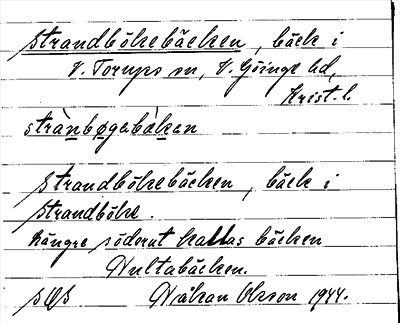 Strandbökebäcken, bäck i
V. Torups sn, V. Göinge hd,
Krist. l.
strànbøgabàkan
Strandbökebäcken, bäck i
Strandböke.
Längre söderut kallas bäcken
Hultabäcken.
Håkan Olsson 1944.